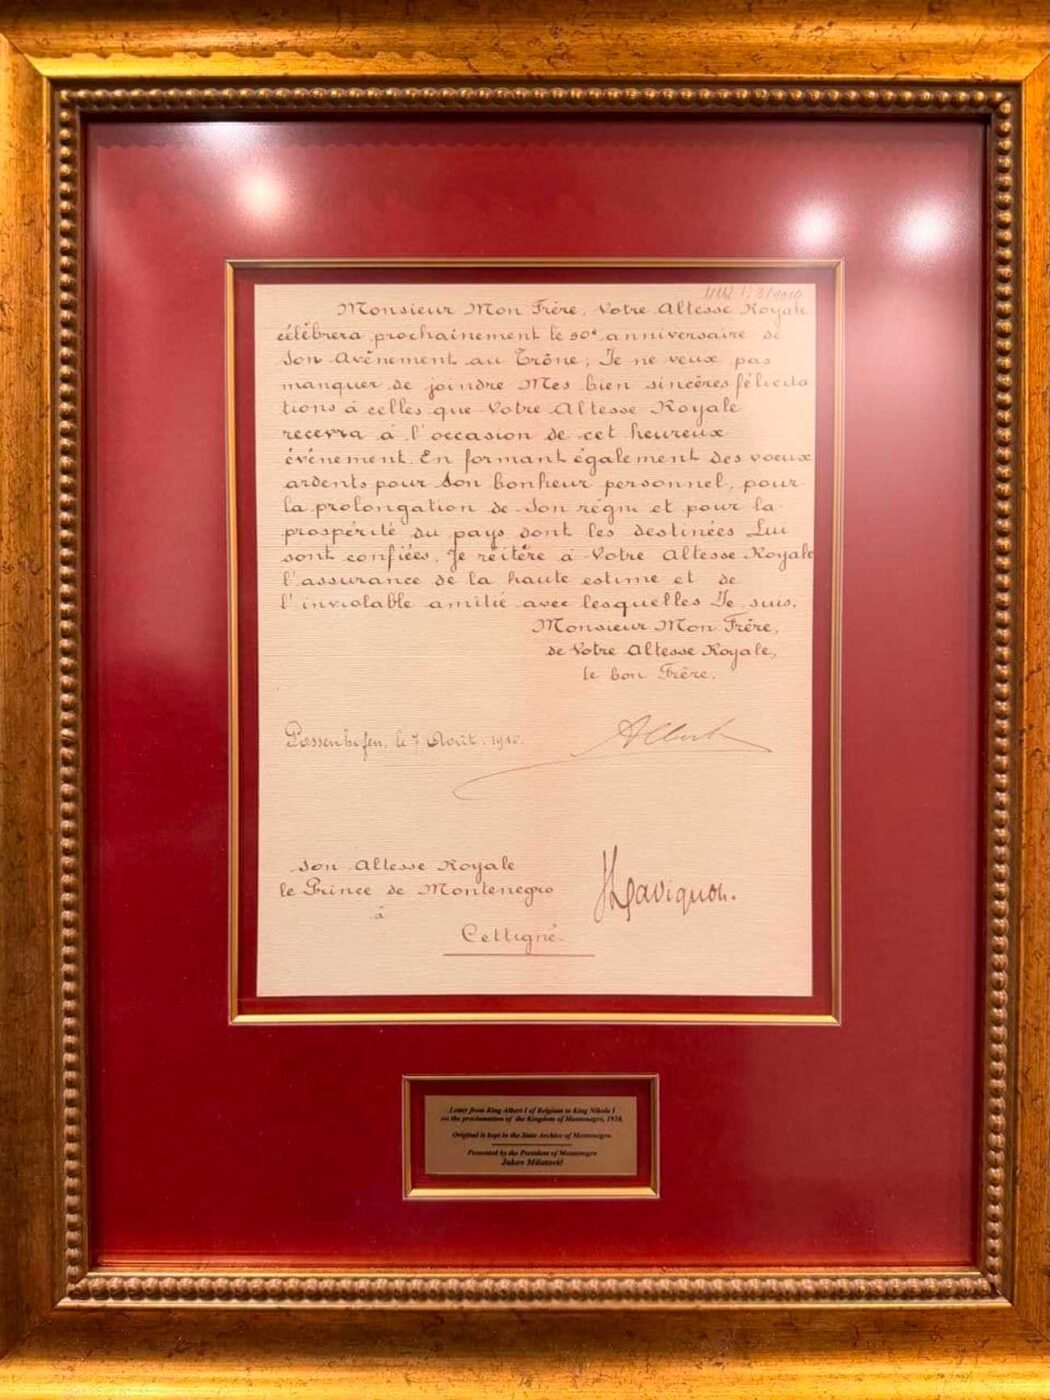 Monsieur Mon Frère, Votre Altesse Royale
célébrera prochainement le 50e anniversaire de
Son Avènement au Trône; Je ne veux pas
manquer de joindre Mes bien sincères félicita
tions à celles que Votre Altesse Royale
recevra à l'occasion de cet heureux
événement. En formant également des voeux
ardents pour Son bonheur personnel, pour
la prolongation de Son règne et pour la
prospérité du pays dont les destinées Lui
sont confiées, Je réitère à Votre Altesse Royale
l'assurance de la haute estime et de
l'inviolable amitié avec lesquelles Je suis,
Monsieur Mon Frère,
de Votre Altesse Royale,
le bon Frère,
Possenhofen, le 7 Août. 1910.
Albert
Son Altesse Royale
le Prince de Montenegro
à
Cettigné.
Letter from King Albert I of Belgium to King Nikola I
on the proclamation of the Kingdom of Montenegro, 1910.
Original is kept in the State Archive of Montenegro.
Presented by the President of Montenegro
Jakov Milatović